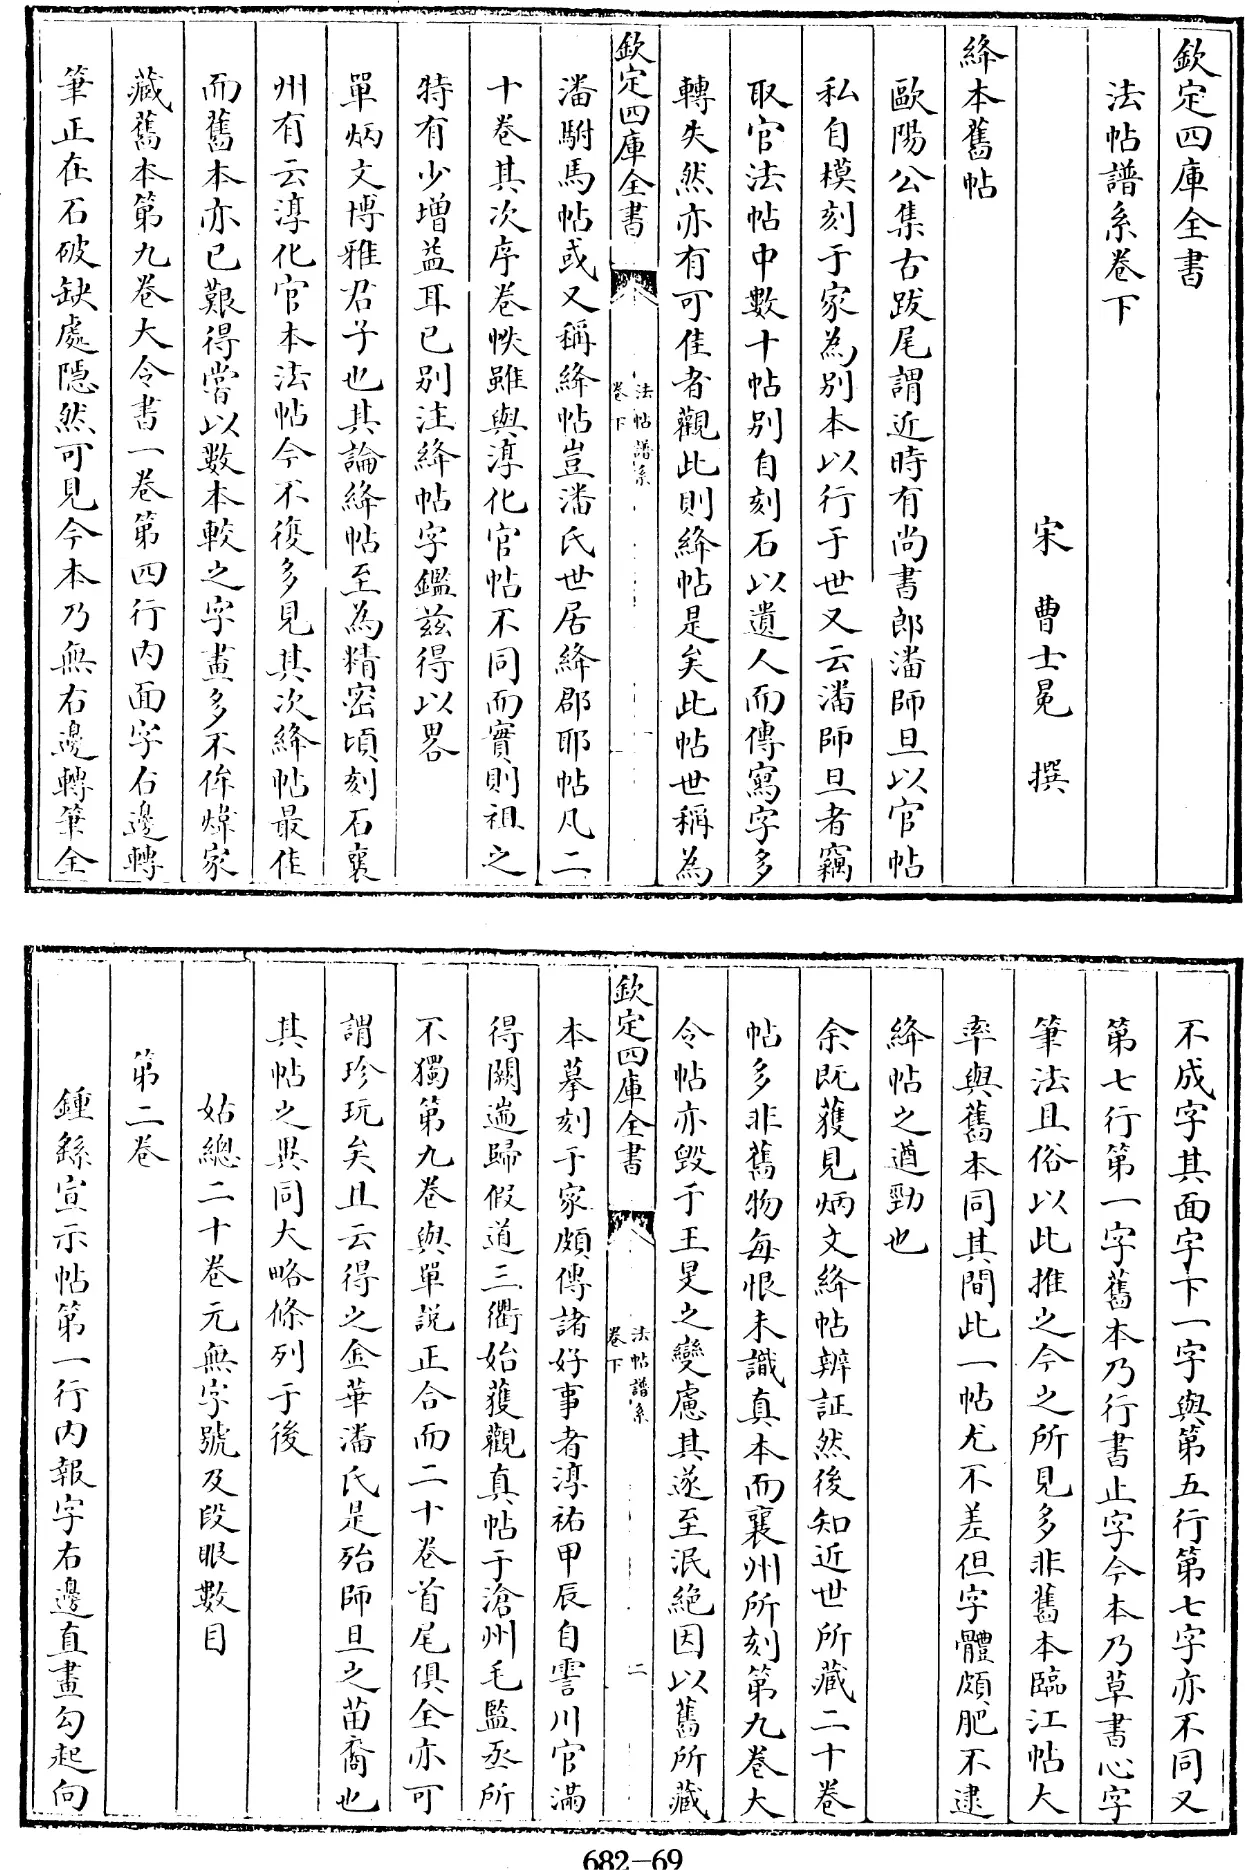 欽定四庫全書
法帖譜系卷下
宋　曹士冕　撰
絳本舊帖
歐陽公集古跋尾謂近時有尚書郎潘師旦以官帖
私自模刻于家為別本以行于世又云潘師旦者竊
取官法帖中數十帖別自刻石以遺人而傳寫字多
轉失然亦有可佳者觀此則絳帖是矣此帖世稱為
欽定四庫全書
法帖譜系
卷下
一
潘駙馬帖或又稱絳帖豈潘氏世居絳郡耶帖凡二
十卷其次序卷帙雖與淳化官帖不同而實則祖之
特有少增益耳已別注絳帖字鑑茲得以畧
單炳文博雅君子也其論絳帖至為精密頃刻石襄
州有云淳化官本法帖今不復多見其次絳帖最佳
而舊本亦已艱得嘗以數本較之字畫多不侔煒家
藏舊本第九卷大令書一卷第四行內面字右邊轉
筆正在石破缺處隱然可見今本乃無右邊轉筆全
不成字其面字下一字與第五行第七字亦不同又
第七行第一字舊本乃行書止字今本乃草書心字
筆法且俗以此推之今之所見多非舊本臨江帖大
率與舊本同其間此一帖尤不差但字體頗肥不逮
絳帖之遒勁也
余既獲見炳文絳帖辨証然後知近世所藏二十卷
帖多非舊物每恨未識真本而襄州所刻第九卷大
令帖亦毀于王旻之變慮其遂至泯絕因以舊所藏
欽定四庫全書
法帖譜系
卷下
二
本摹刻于家頗傳諸好事者淳祐甲辰自霅川官滿
得闕遄歸假道三衢始獲觀真帖于滄州毛監丞所
不獨第九卷與單說正合而二十卷首尾俱全亦可
謂珍玩矣且云得之金華潘氏是殆師旦之苗裔也
其帖之異同大略條列于後
姑總二十卷元無字號及段眼數目
第二卷
鍾繇宣示帖第一行內報字右邊直畫勾起向
682-69